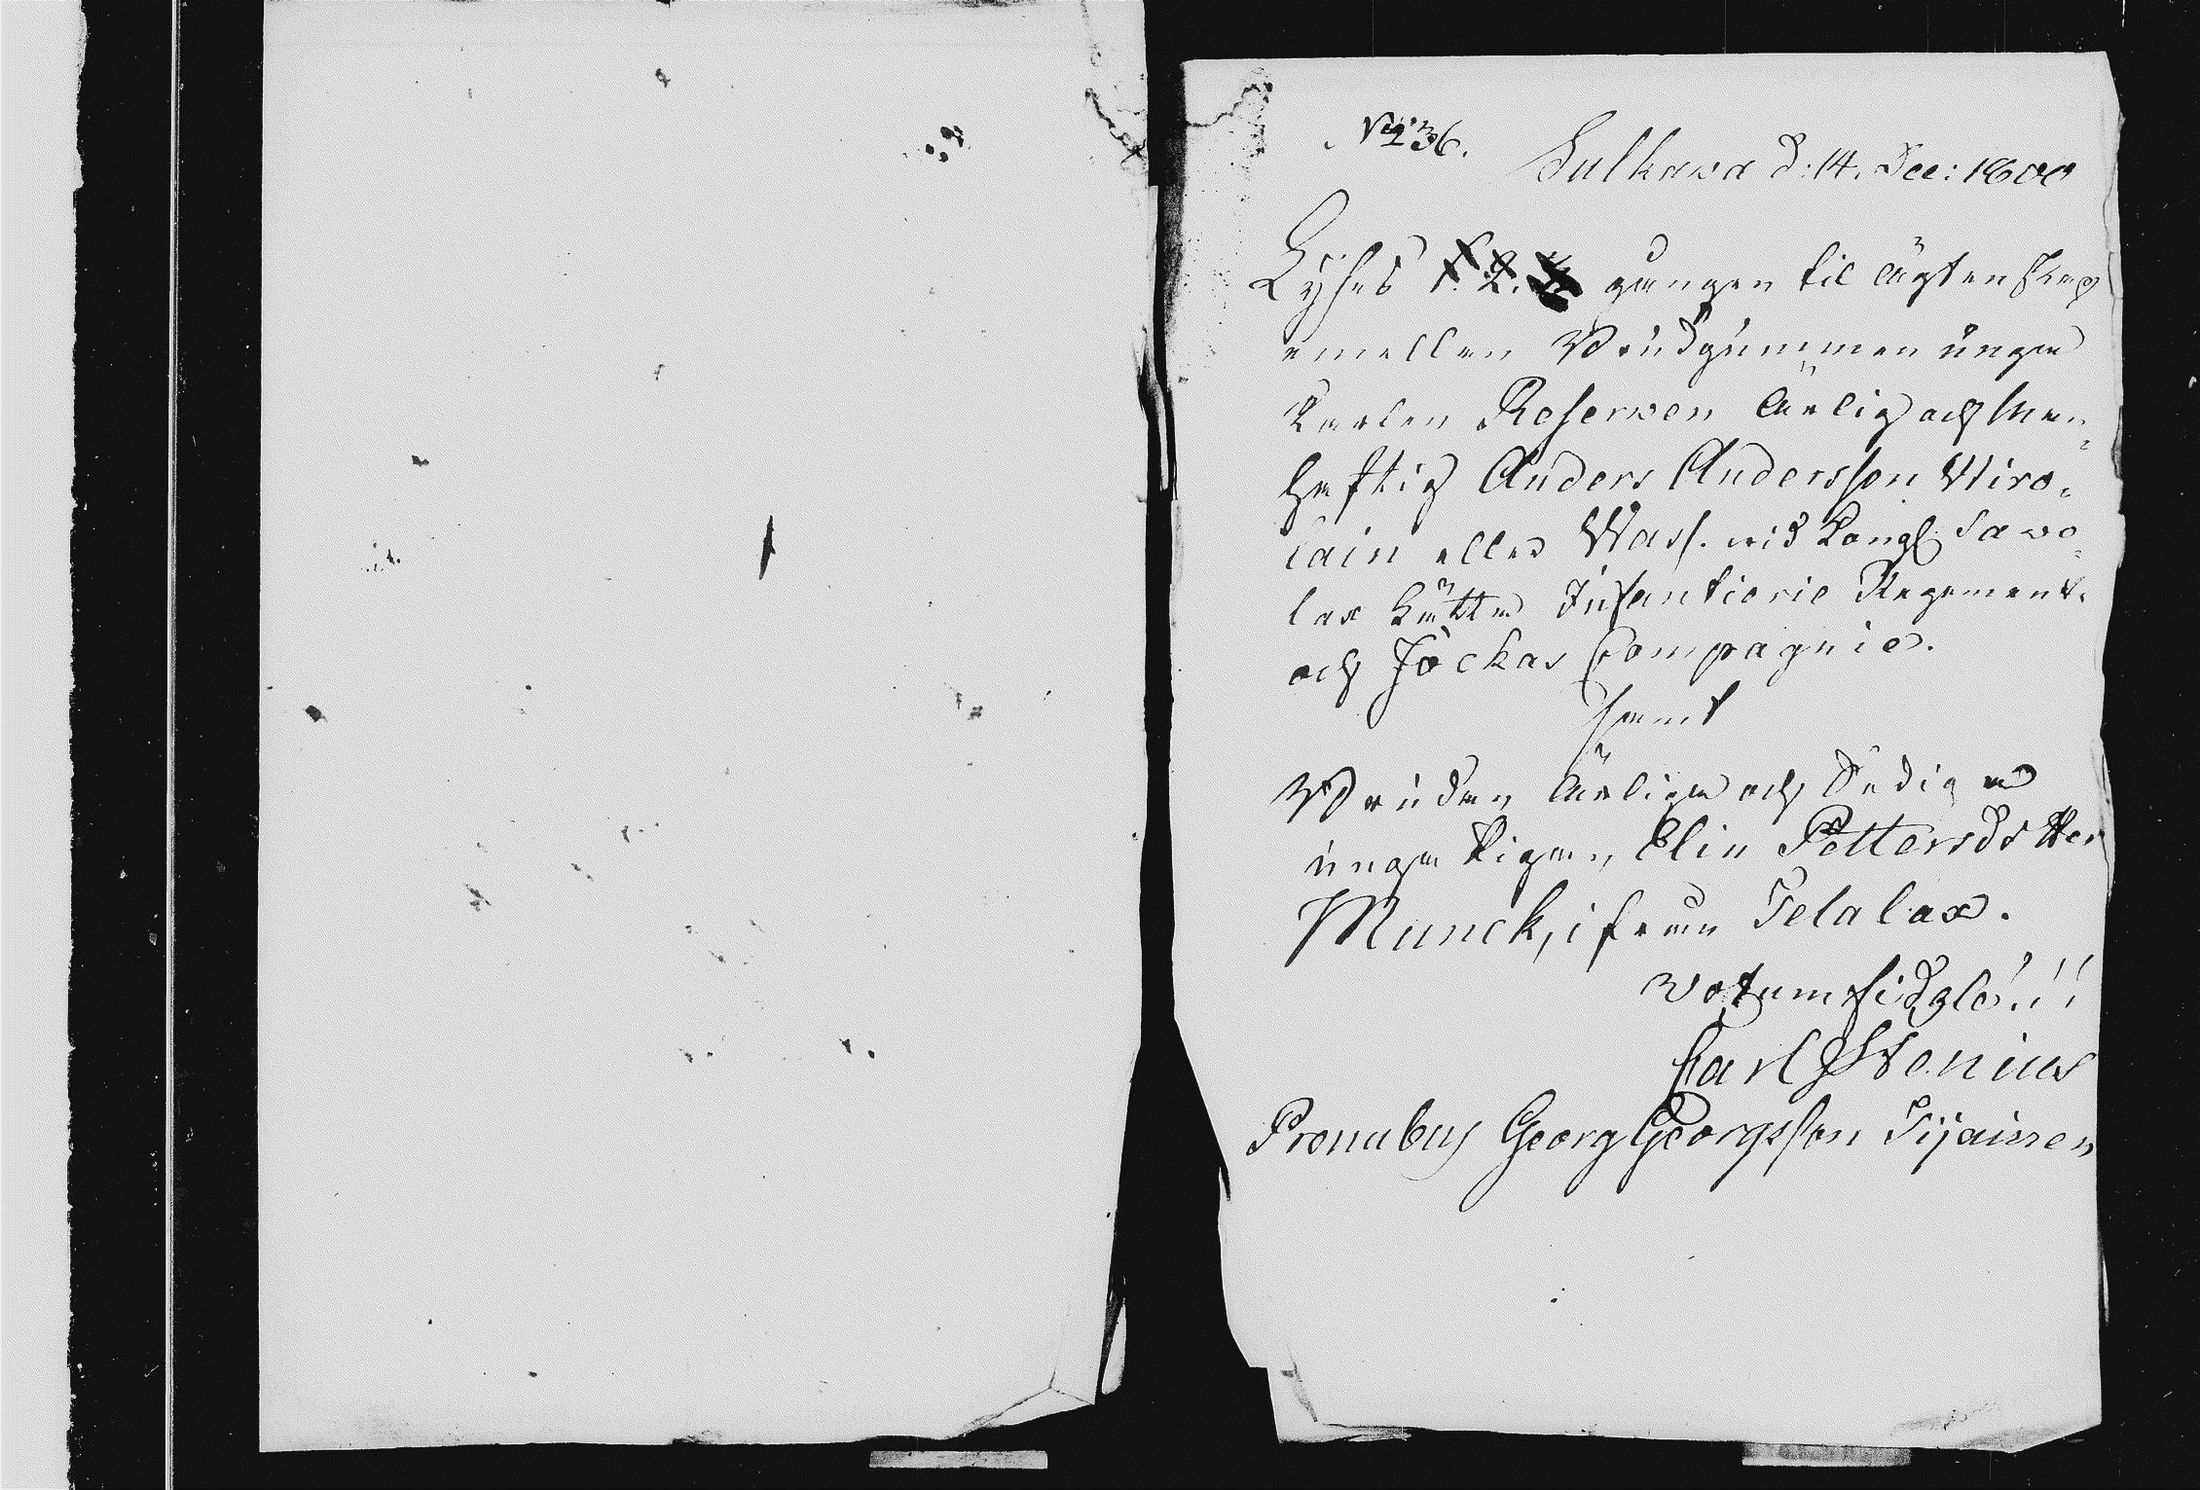 No 236.
Sulkawa d: 14. Dec: 1800
Lyses 1. 2. gången til ägtenskap
emellan Brudgummen unga
Karlen Reserven Ärlig och Man-
haftig Anders Andersson Wiro-
lain eller Wass. vid Kongl. Savo-
lax Lätta Infanterie Regement.
och Jockas Compagnie.
samt
Bruden Ärliga och Sediga
unga Pigan, Elin Pettersdotter
Munck, ifrån Telalax.
Carl Stenius
Pronubus Georg Georgsson